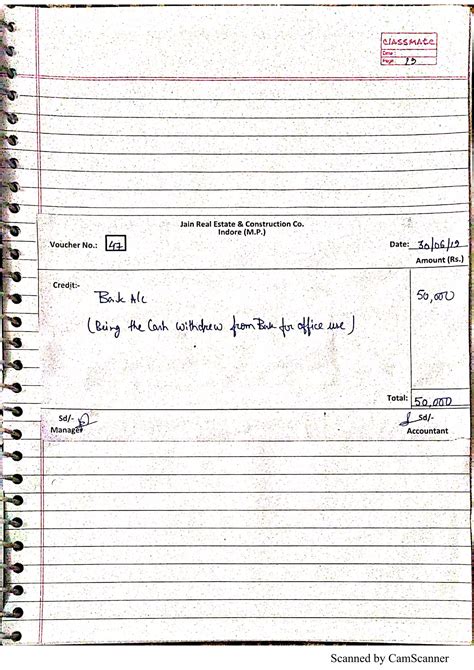 CLASSMATE
Date :
Page : 15
Jain Real Estate & Construction Co.
Indore (M.P.)
Voucher No.: 47
Date: 30/06/19
Amount (Rs.)
Credit:-
Bank A/c 50,000
(Being the Cash withdrew from Bank for office use)
Total: 50,000
Sd/- Sd/-
Manager Accountant
Scanned by CamScanner